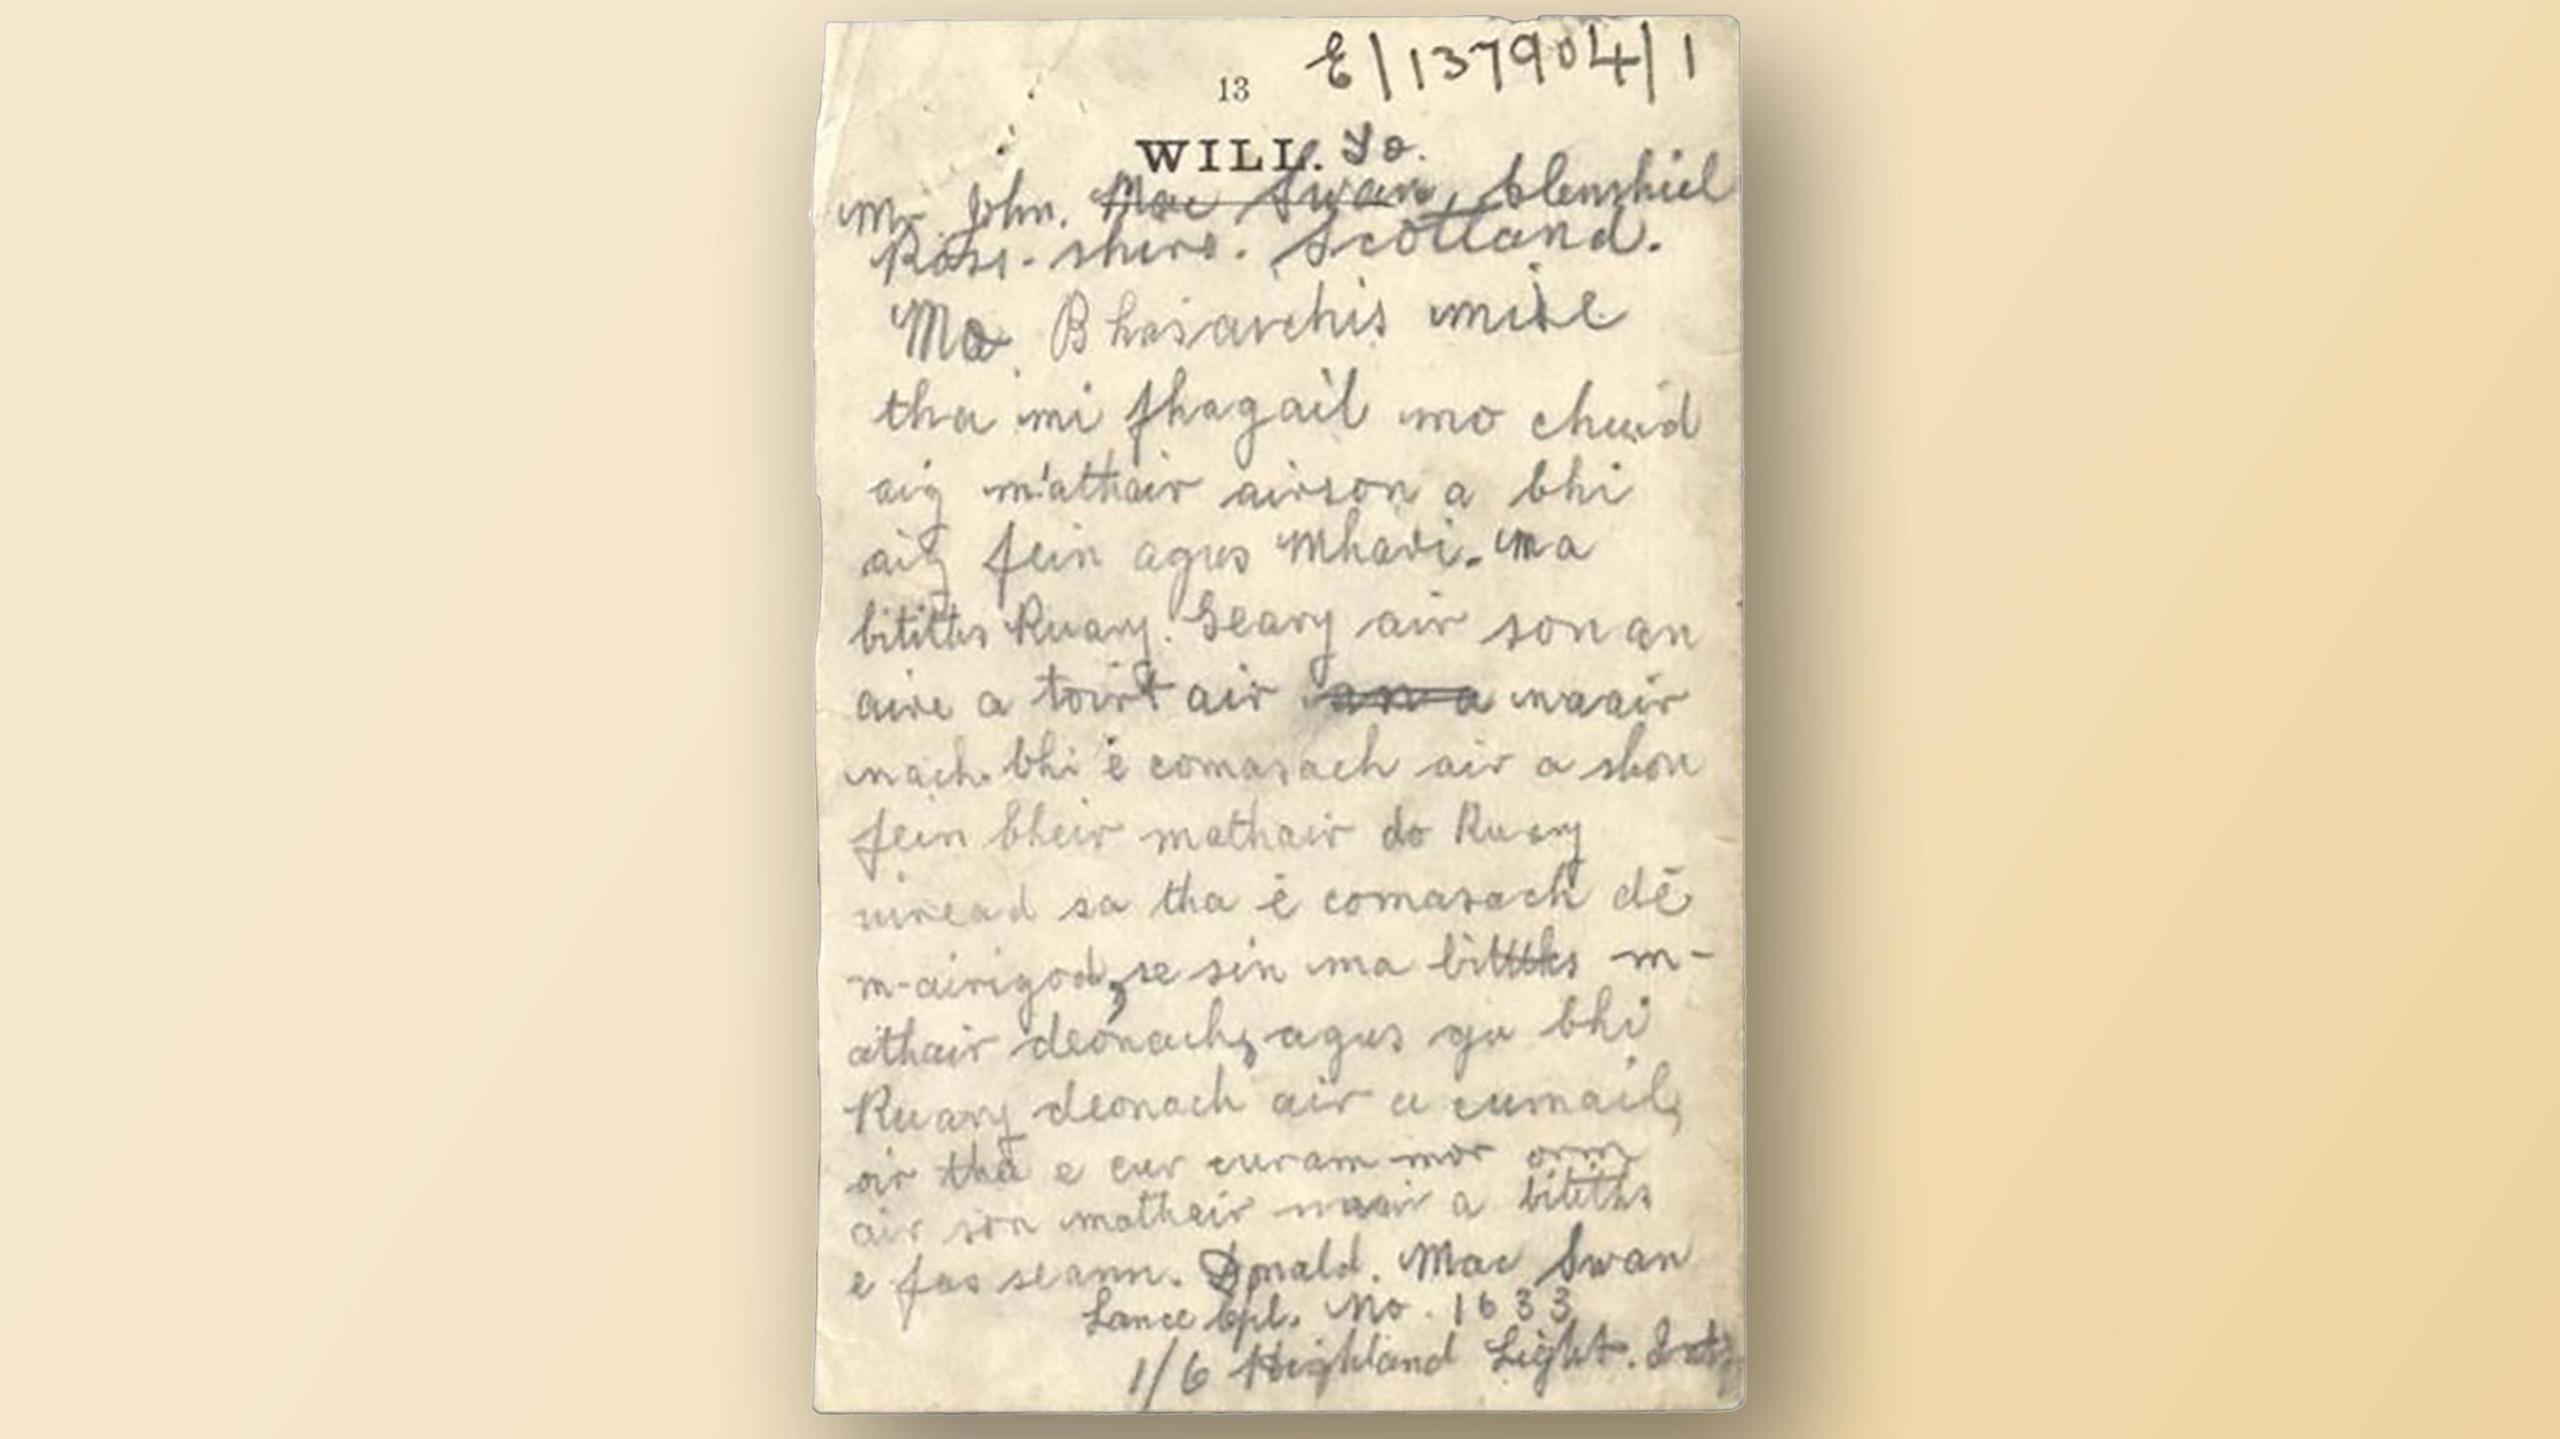 E/137904/1
13
WILL. To.
Mr. John. Mac Swan, Glenshiel
Ross-shire. Scotland.
Ma Bhasaichis mise
tha mi fhagail mo chuid
aig m'athair airson a bhi
aig fein agus Mhari. ma
bitiths Ruary. Geary air son an
aire a toirt air an a nuair
nach bhi e comasach air a shon
fein bheir mathair do Ruary
uiread sa tha e comasach dē
m-airigod, se sin ma bititths m-
athair deonach, agus gu bhi
Ruary deonach air a cumail,
oir tha e cur curam mor orm
air son mathair nuair a bitiths
e fas seann. Donald. Mac Swan
Lance Cpl. No. 1633
1/6 Highland Light. Inf.